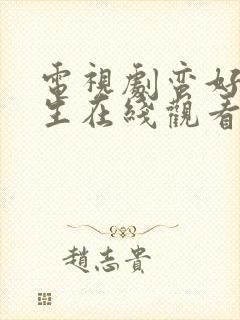 電視劇蛮好
生在綫觀看
趙志貴